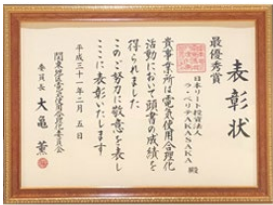 表彰状
最優秀賞
日本リート投資法人
ラ・ペリテAKASAKA 殿
貴事業所は電気使用合理化
活動において頭書の成績を
得られました
このご努力に敬意を表し
ここに表彰いたします
平成三十一年二月五日
関東地区電気使用合理化委員会
委員長 大亀 薫